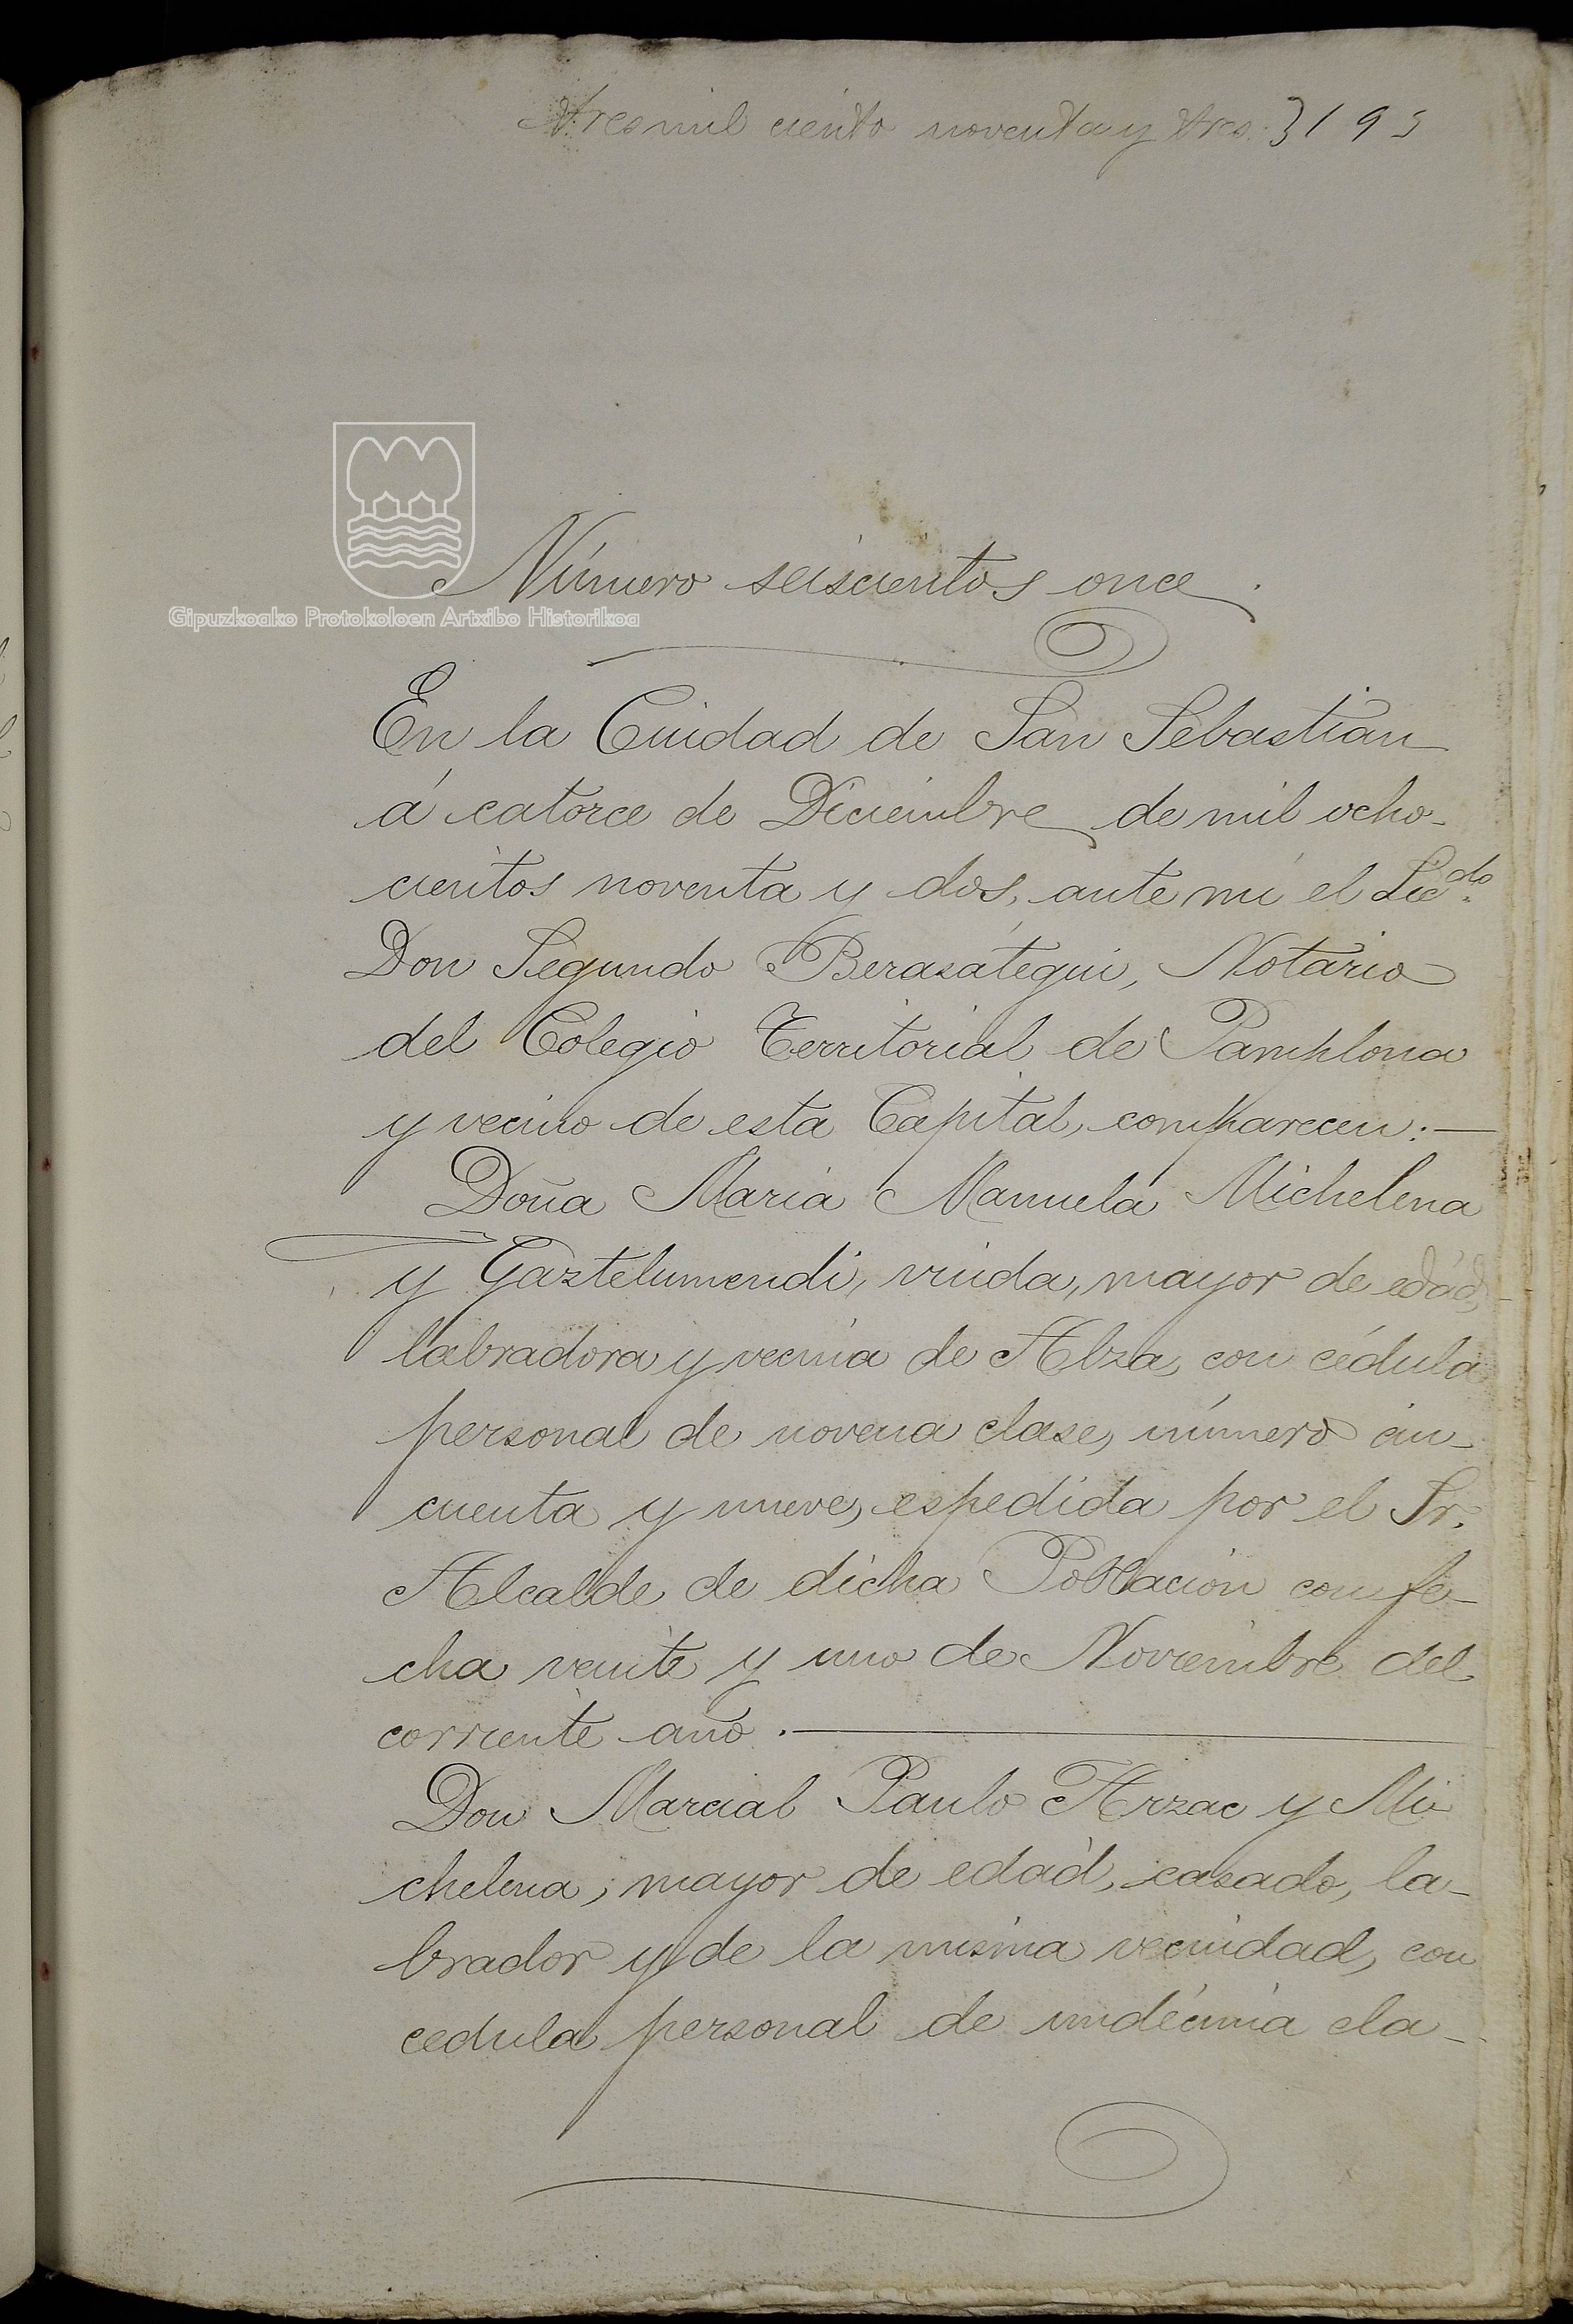 tres mil ciento noventa y tres. 3193
Gipuzkoako Protokoloen Artxibo Historikoa
Número seiscientos once.
En la Ciudad de San Sebastian
á catorce de Diciembre de mil ocho-
cientos noventa y dos, ante mi el Licdo.
Don Segundo Berasátegui, Notario
del Colegio Territorial de Pamplona
y vecino de esta Capital, comparecen:—
Doña Maria Manuela Michelena
y Gaztelumendi, viuda, mayor de edád,
labradora y vecina de Alza, con cédula
personal de novena clase, número cin-
cuenta y nueve, espedida por el Sr.
Alcalde de dicha Poblacion con fe-
cha veinte y uno de Noviembre del
corriente año.—
Don Marcial Paulo Arzac y Mi-
chelena, mayor de edad, casado, la-
brador y de la misma vecindad, con
cedula personal de undécima cla-